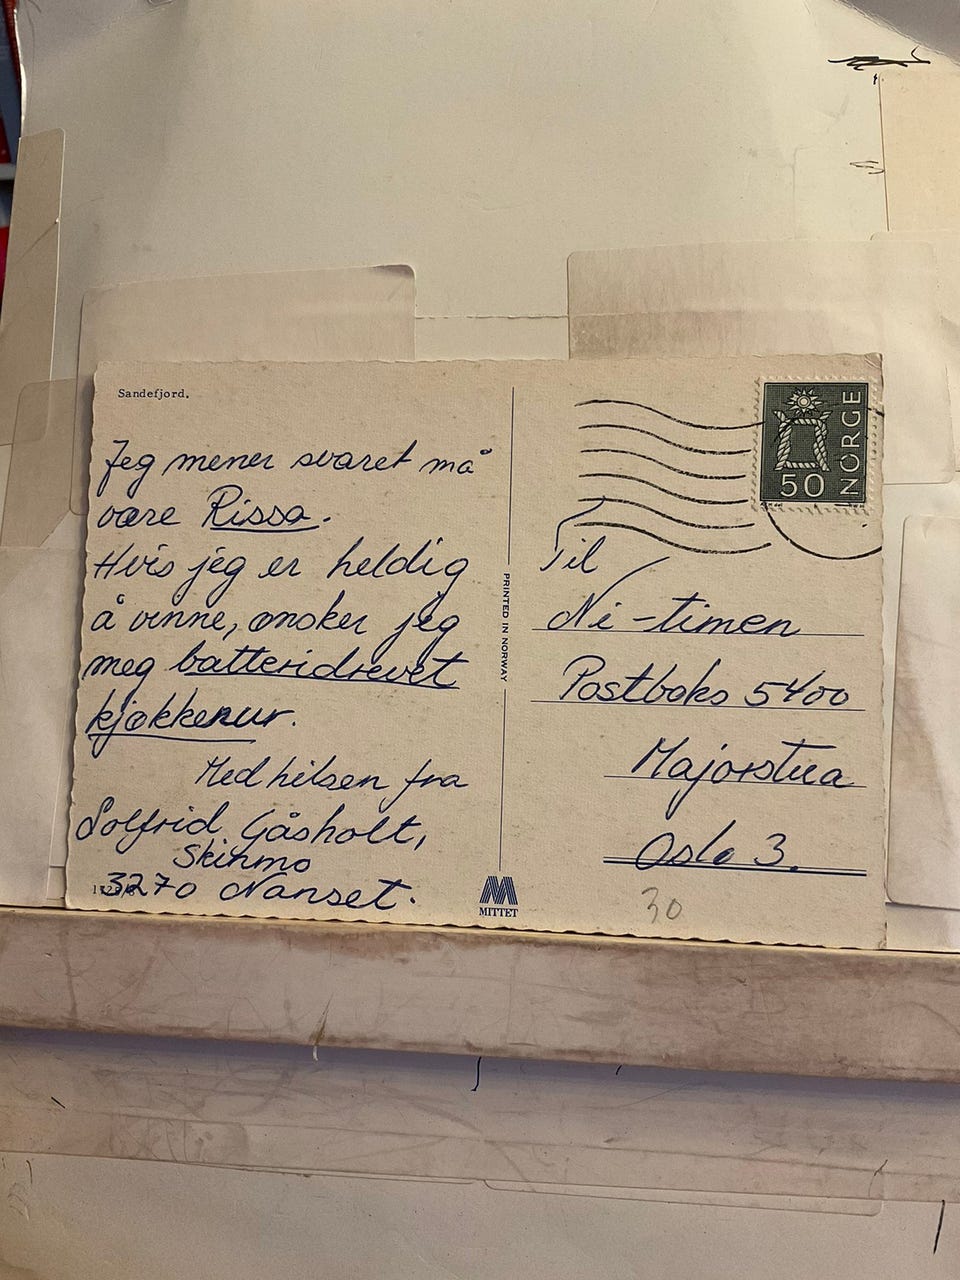 Sandefjord.
Jeg mener svaret må
være Rissa.
Hvis jeg er heldig
å vinne, ønsker jeg
meg batteridrevet
kjøkkenur.
Med hilsen fra
Solfrid Gåsholt,
Skinmo
3270 Nanset.
PRINTED IN NORWAY
MITTET
NORGE
50
Til
Ni-timen
Postboks 5400
Majorstua
Oslo 3.
30